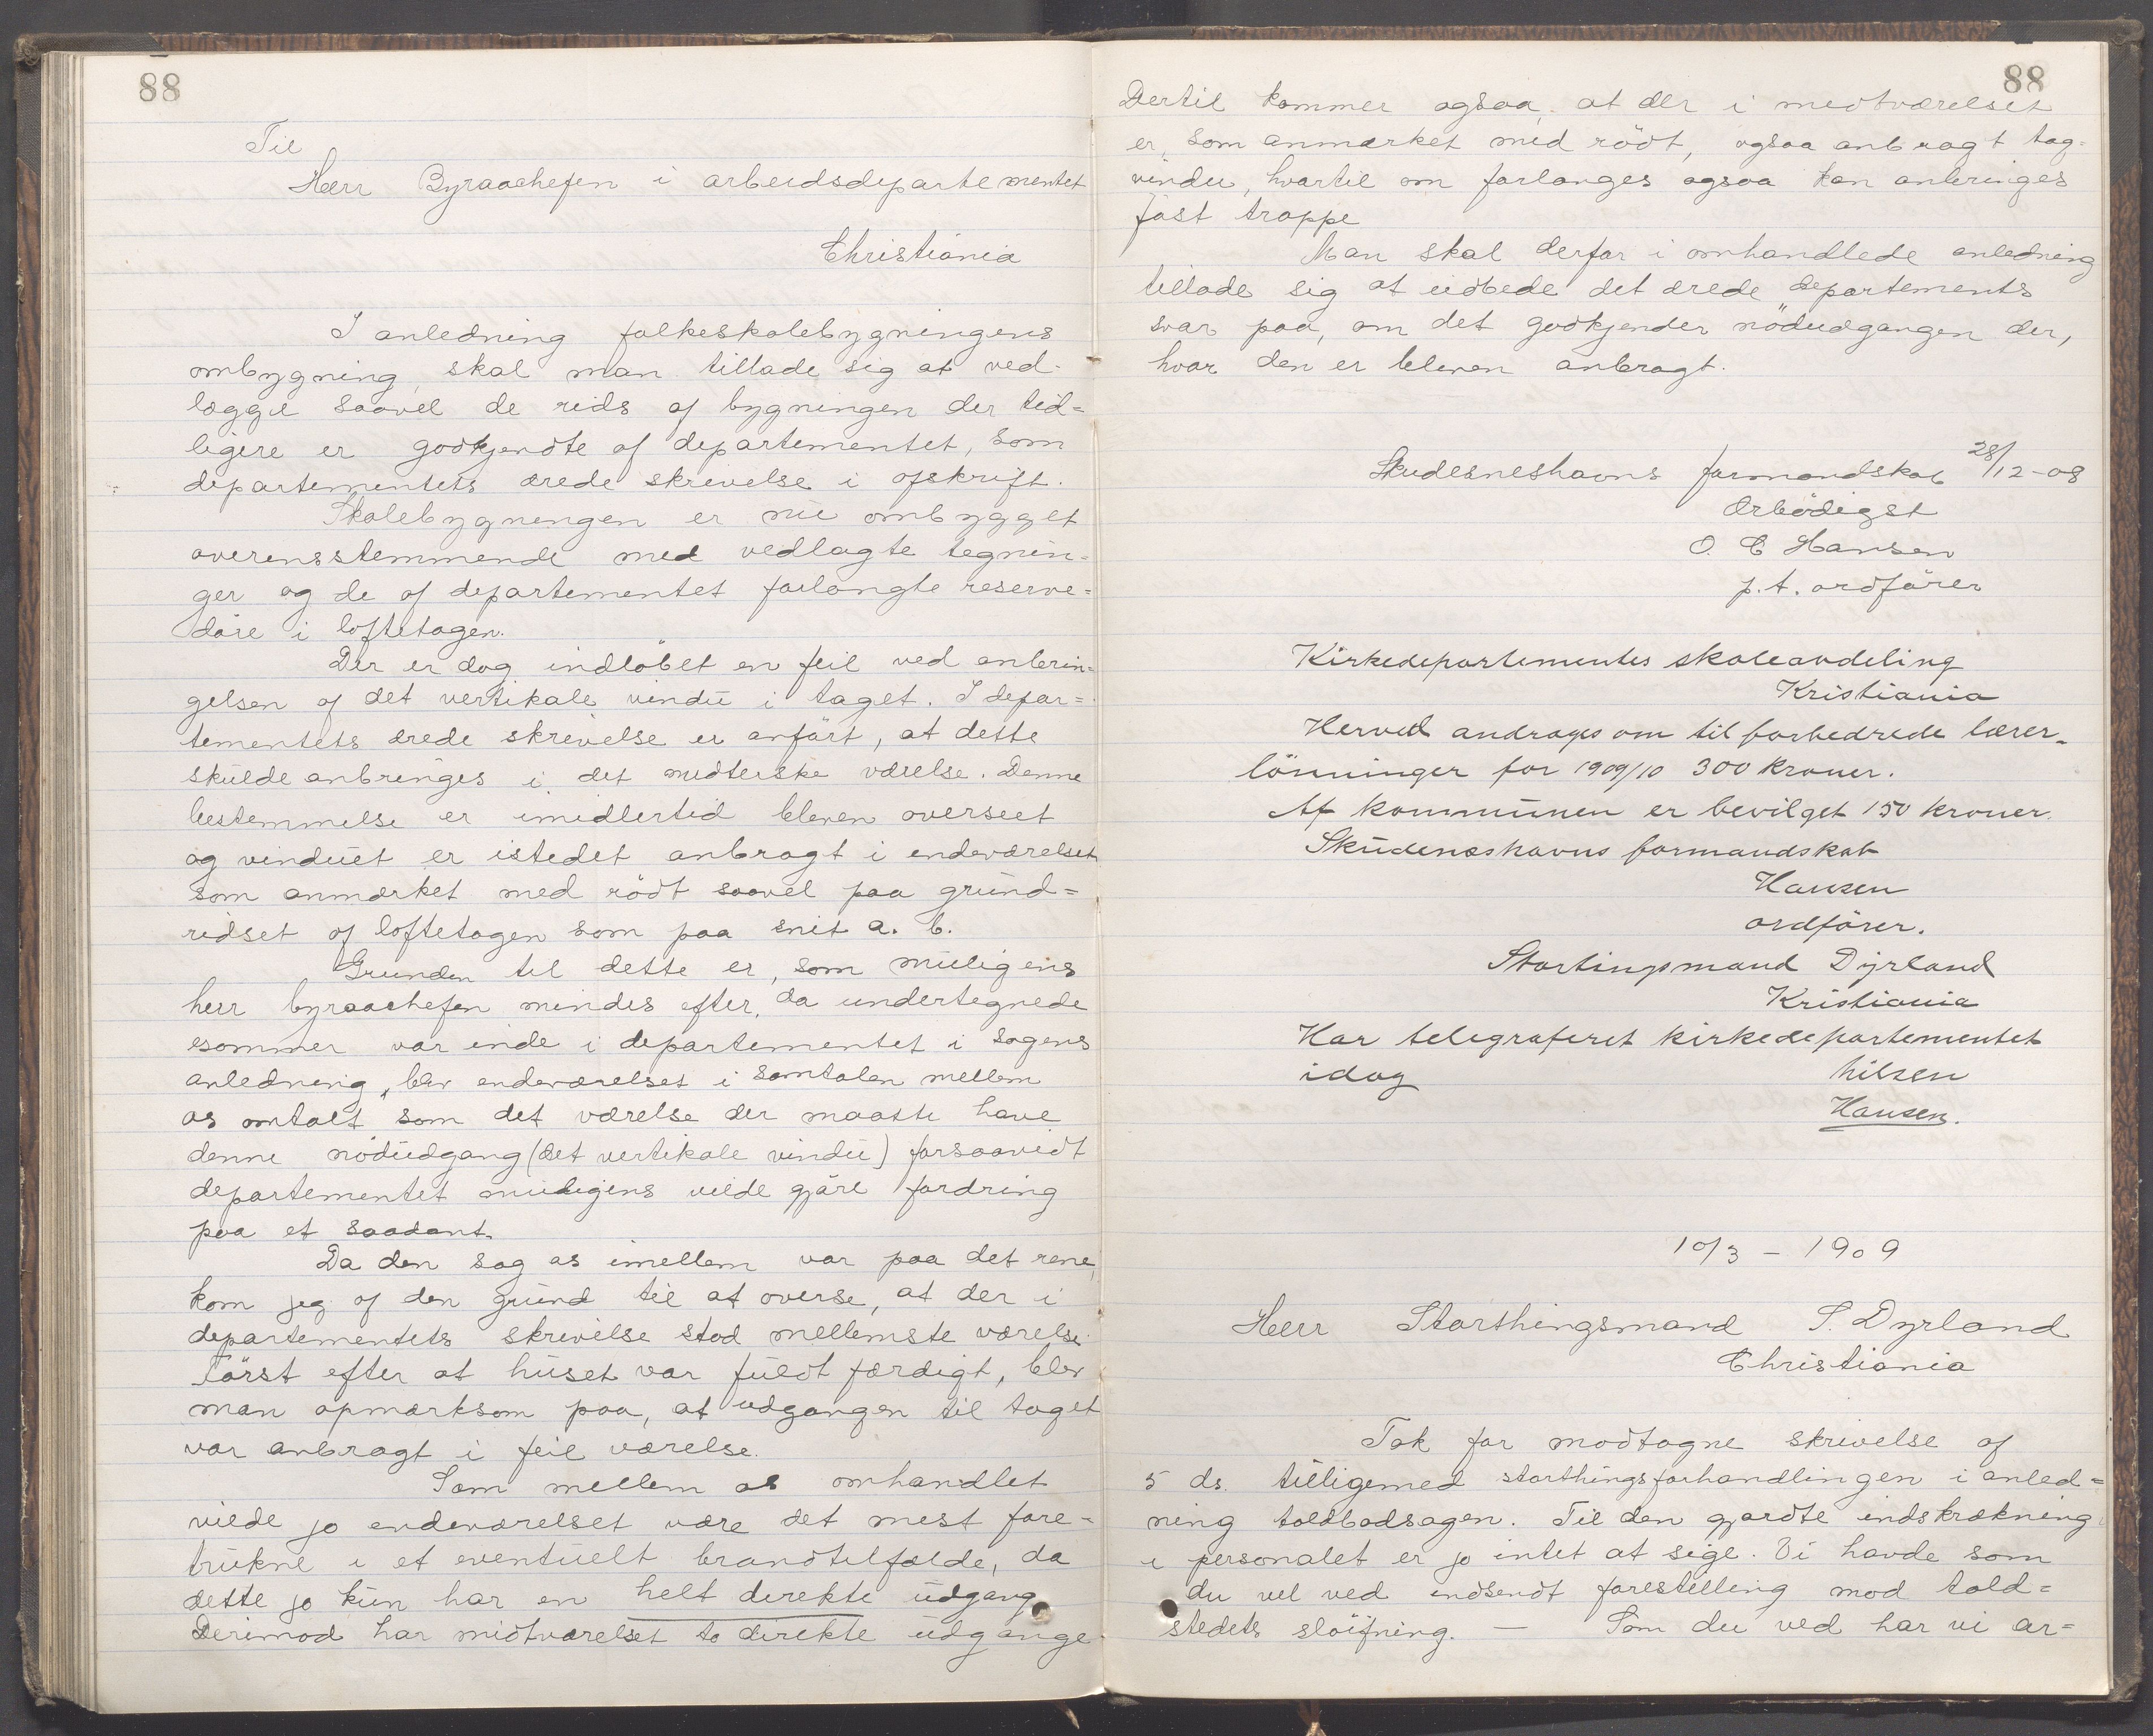 88
Til
Herr Byraachefen i arbeidsdepartementet
Christiania
I anledning folkeskolebygningens
ombygning, skal man tillade sig at ved-
lægge saavel de rids af bygningen der tid=
ligere er godkjendte af departementet, som
departementets ærede skrivelse i afskrift.
Skolebygningen er nu ombygget
overensstemmende med vedlagte tegnin-
ger og de af departementet forlangte reserve=
döre i loftetagen.
Der er dog indlöbet en feil ved anbrin=
gelsen af det vertikale vindu i taget. I depar=
tementets ærede skrivelse er anfört, at dette
skulde anbringes i det midterske værelse. Denne
bestemmelse er imidlertid bleven overseet
og vinduet er istedet anbragt i endeværelset
som anmærket med rödt saavel paa grund=
ridset af loftetagen som paa snit a. b.
Grunden til dette er, som muligens
herr byraachefen mindes efter, da undertegnede
isommer var inde i departementet i sagens
anledning, blev endeværelset i samtalen mellem
os omtalt som det værelse der maatte have
denne nödudgang (det vertikale vindu) forsaavidt
departementet muligens vilde gjöre fordring
paa et saadant.
Da den sag os imellem var paa det rene,
kom jeg af den grund til at overse, at der i
departementets skrivelse stod mellemste værelse.
Först efter at huset var fuldt færdigt, blev
man opmærksom paa, at udgangen til taget
var anbragt i feil værelse.
Som mellem os omhandlet
vilde jo endeværelset være det mest fore-
trukne i et eventuelt brandtilfælde, da
dette jo kun har en helt direkte udgang
Derimod har midtværelset to direkte udgange
88
Dertil kommer ogsaa, at der i midtværelset
er, som anmærket med rödt, ogsaa anbragt tag=
vindu, hvortil om forlanges ogsaa kan anbringes
fast trappe
Man skal derfor i omhandlede anledning
tillade sig at udbede det ærede departements
svar paa, om det godkjender nödudgangen der,
hvor den er bleven anbragt.
Skudesneshavns formandskab 28/12-08
Ærbödigst
O. C Hansen
p.t. ordförer
Kirkedepartementes skoleavdeling
Kristiania
Herved andrages om til forbedrede lærer-
lönninger for 1909/10 300 kroner.
Af kommunen er bevilget 150 kroner.
Skudeneshavns formandskab
Hansen
ordförer.
Stortingsmand Dyrland
Kristiania
Har telegraferet kirkedepartementet
idag hilsen
Hansen.
10/3 - 1909
Herr Storthingsmand S. Dyrland
Christiania
Tak for modtagne skrivelse af
5 ds. tilligemed storthingsforhandlingen i anled=
ning toldbodsagen. Til den gjordte indskrækning
i personalet er jo intet at sige. Vi havde som
du vel ved indsendt forestilling mod told=
stedets slöifning. — Som du ved har vi ar=